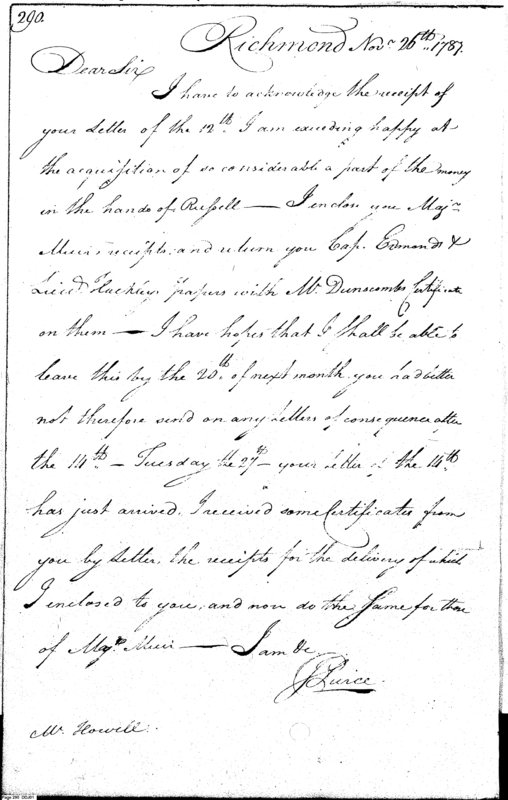 290.
Richmond Novr. 26th. 1787.
Dear Sir
I have to acknowledge the receipt of
your Letter of the 12th. I am exceeding happy at
the acquisition of so considerable a part of the money
in the hands of Russell — I enclose you Majr.
Muir's receipts, and return you Cap. Edmonds &
Lieut. Huckley papers with Mr. Dunscombs Certificate
on them — I have hopes that I shall be able to
leave this by the 20th. of next month you had better
not therefore send on any Letters of consequence after
the 14th — Tuesday the 27th — your Letter of the 14th.
has just arrived. I received some Certificates from
you by Letter, the receipts for the delivery of which
I enclosed to you, and now do the same for those
of Majr. Muir — I am &c
J Pierce.
Mr. Howell.